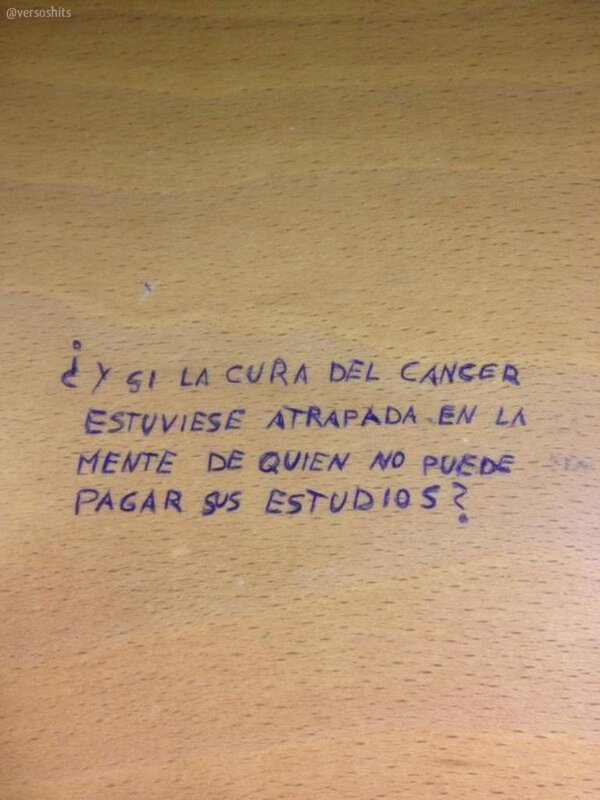 @versoshits
¿Y SI LA CURA DEL CANCER
ESTUVIESE ATRAPADA EN LA
MENTE DE QUIEN NO PUEDE
PAGAR SUS ESTUDIOS?